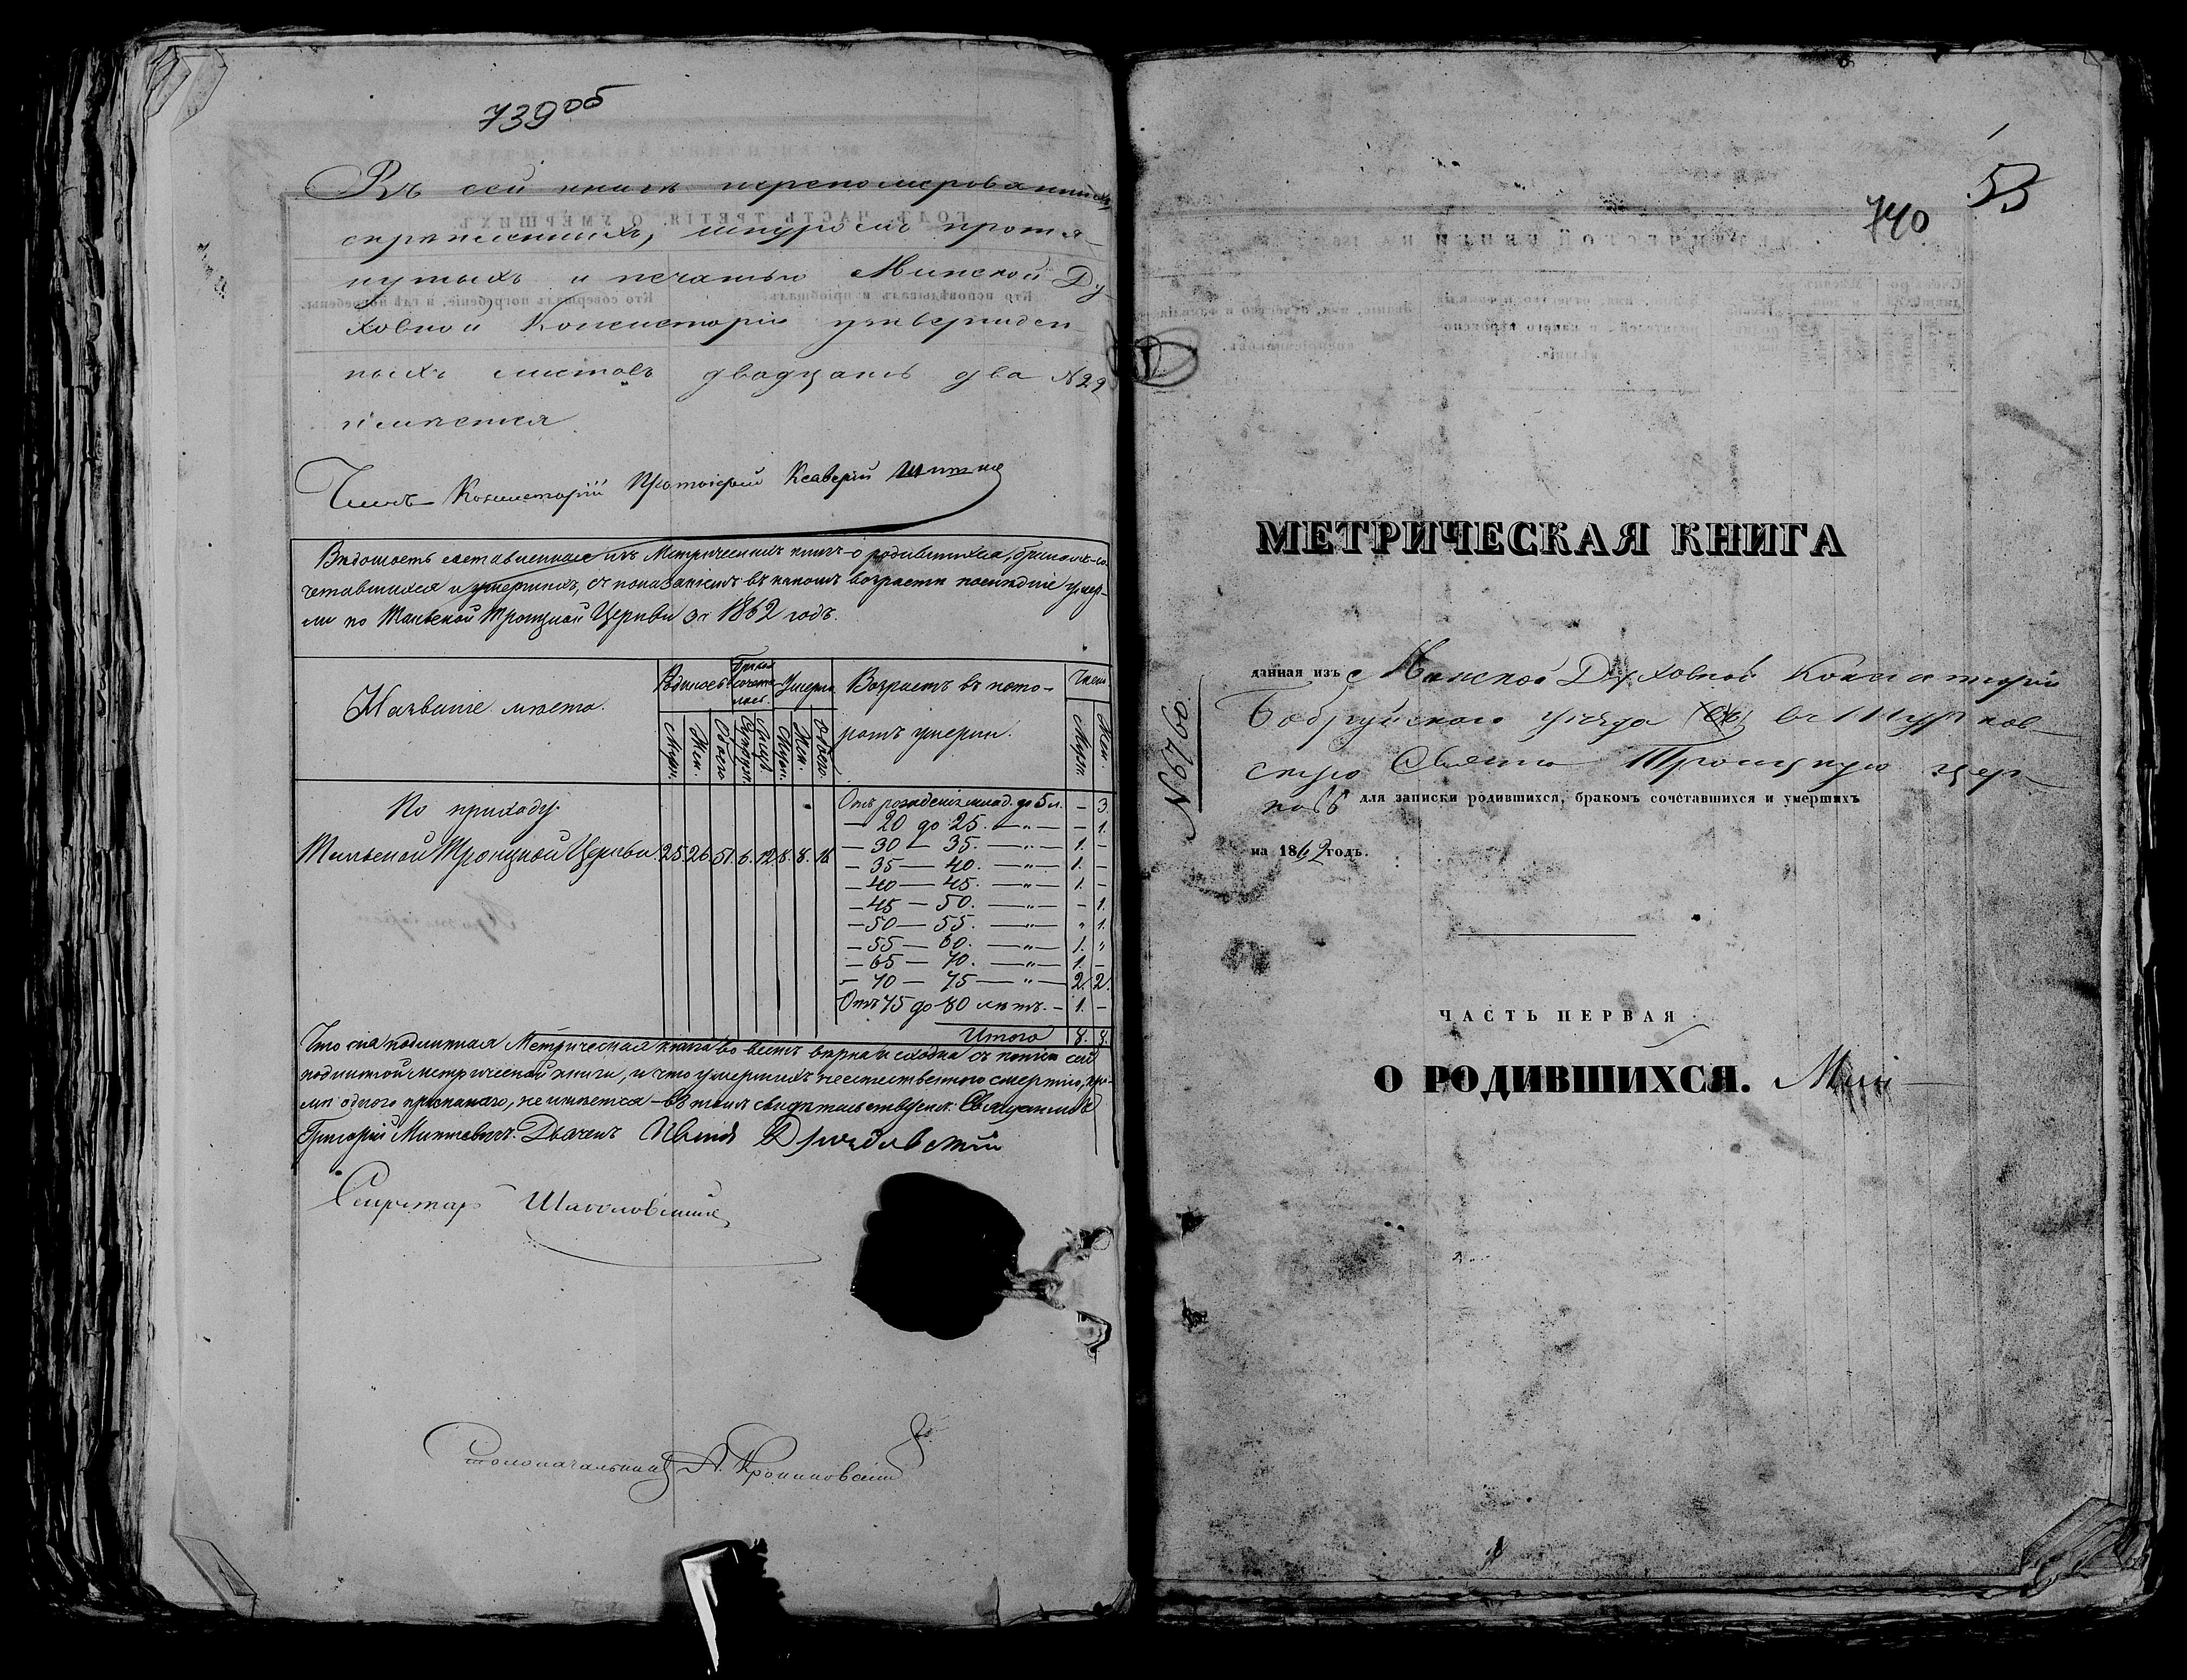 739 об
Въ сей книгѣ перенумерованныхъ,
скрѣпленныхъ, шнуромъ протя-
нутыхъ и печатью Минской Ду-
ховной Консисторіи утвержден-
ныхъ листовъ двадцать два №22
имѣется
Членъ Консисторіи Протоіерей Ксаверій
Вѣдомость составленная изъ Метрическихъ книгъ о родившихся, бракомъ со-
четавшихся и умершихъ, съ показаніемъ въ какомъ возрастѣ послѣдніе умер-
ли по Тальской Троицкой Церкви за 1862 годъ.
Названіе мѣста.
Родилось
Бракомъ сочета-
лись.
Умерло
Возрастъ въ кото-
ромъ умерли.
Число
Муж.
Жен.
Обоего
Супруж.
Лицъ
Муж.
Жен.
Обоего.
Муж.
Жен.
По приходу
Тальской Троицкой Церкви. 25. 26. 51. 6. 12. 8. 8. 16
Отъ рожденія млад. до 5 л. – 3
— 20 до 25. —„— – 1.
— 30 — 35. —„— 1. –
— 35 — 40. —„— 1. –
— 40 — 45. —„— 1. –
— 45 — 50. —„— – 1.
— 50 — 55. —„— „ 1.
— 55 — 60. —„— 1. „
— 65 — 70. —„— 1. –
— 70 — 75 —„— 2. 2.
Отъ 75 до 80 лѣтъ. – 1. –
Итого 8. 8.
Что сія подлинная Метрическая книга во всемъ вѣрна и сходна съ копіею сей
подлинной метрической книги, и что умершихъ неестественною смертію, кро-
мѣ одного, не имѣется – въ томъ свидѣтельствуемъ: Священникъ
Григорій Мигневичъ. Дьячекъ
Секретарь
Столоначальникъ А.
53
740
МЕТРИЧЕСКАЯ КНИГА
данная изъ Минской Духовной Консисторіи
Бобруйскаго уѣзда въ
скую Свято Троицкую цер-
ковь для записки родившихся, бракомъ сочетавшихся и умершихъ
на 1862 годъ.
№6790
ЧАСТЬ ПЕРВАЯ
О РОДИВШИХСЯ.